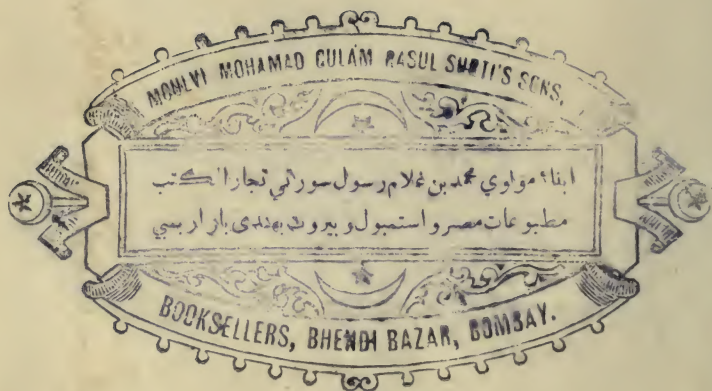 MOULVI MOHAMAD GULÁM RASUL SURTI'S SONS,
ابناء مولوي محمد بن غلام رسول سورتي تجار الكتب
مطبوعات مصر و استمبول و بيروت بهندى بازار بمبي
BOOKSELLERS, BHENDI BAZAR, BOMBAY.